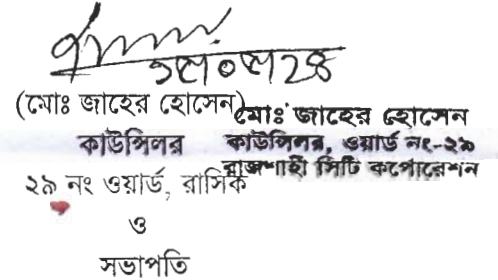 (মোঃ জাহের হোসেন)
কাউন্সিলর
২৯ নং ওয়ার্ড, রাসিক
ও
সভাপতি
মোঃ জাহের হোসেন
কাউন্সিলর, ওয়ার্ড নং-২৯
রাজশাহী সিটি কর্পোরেশন